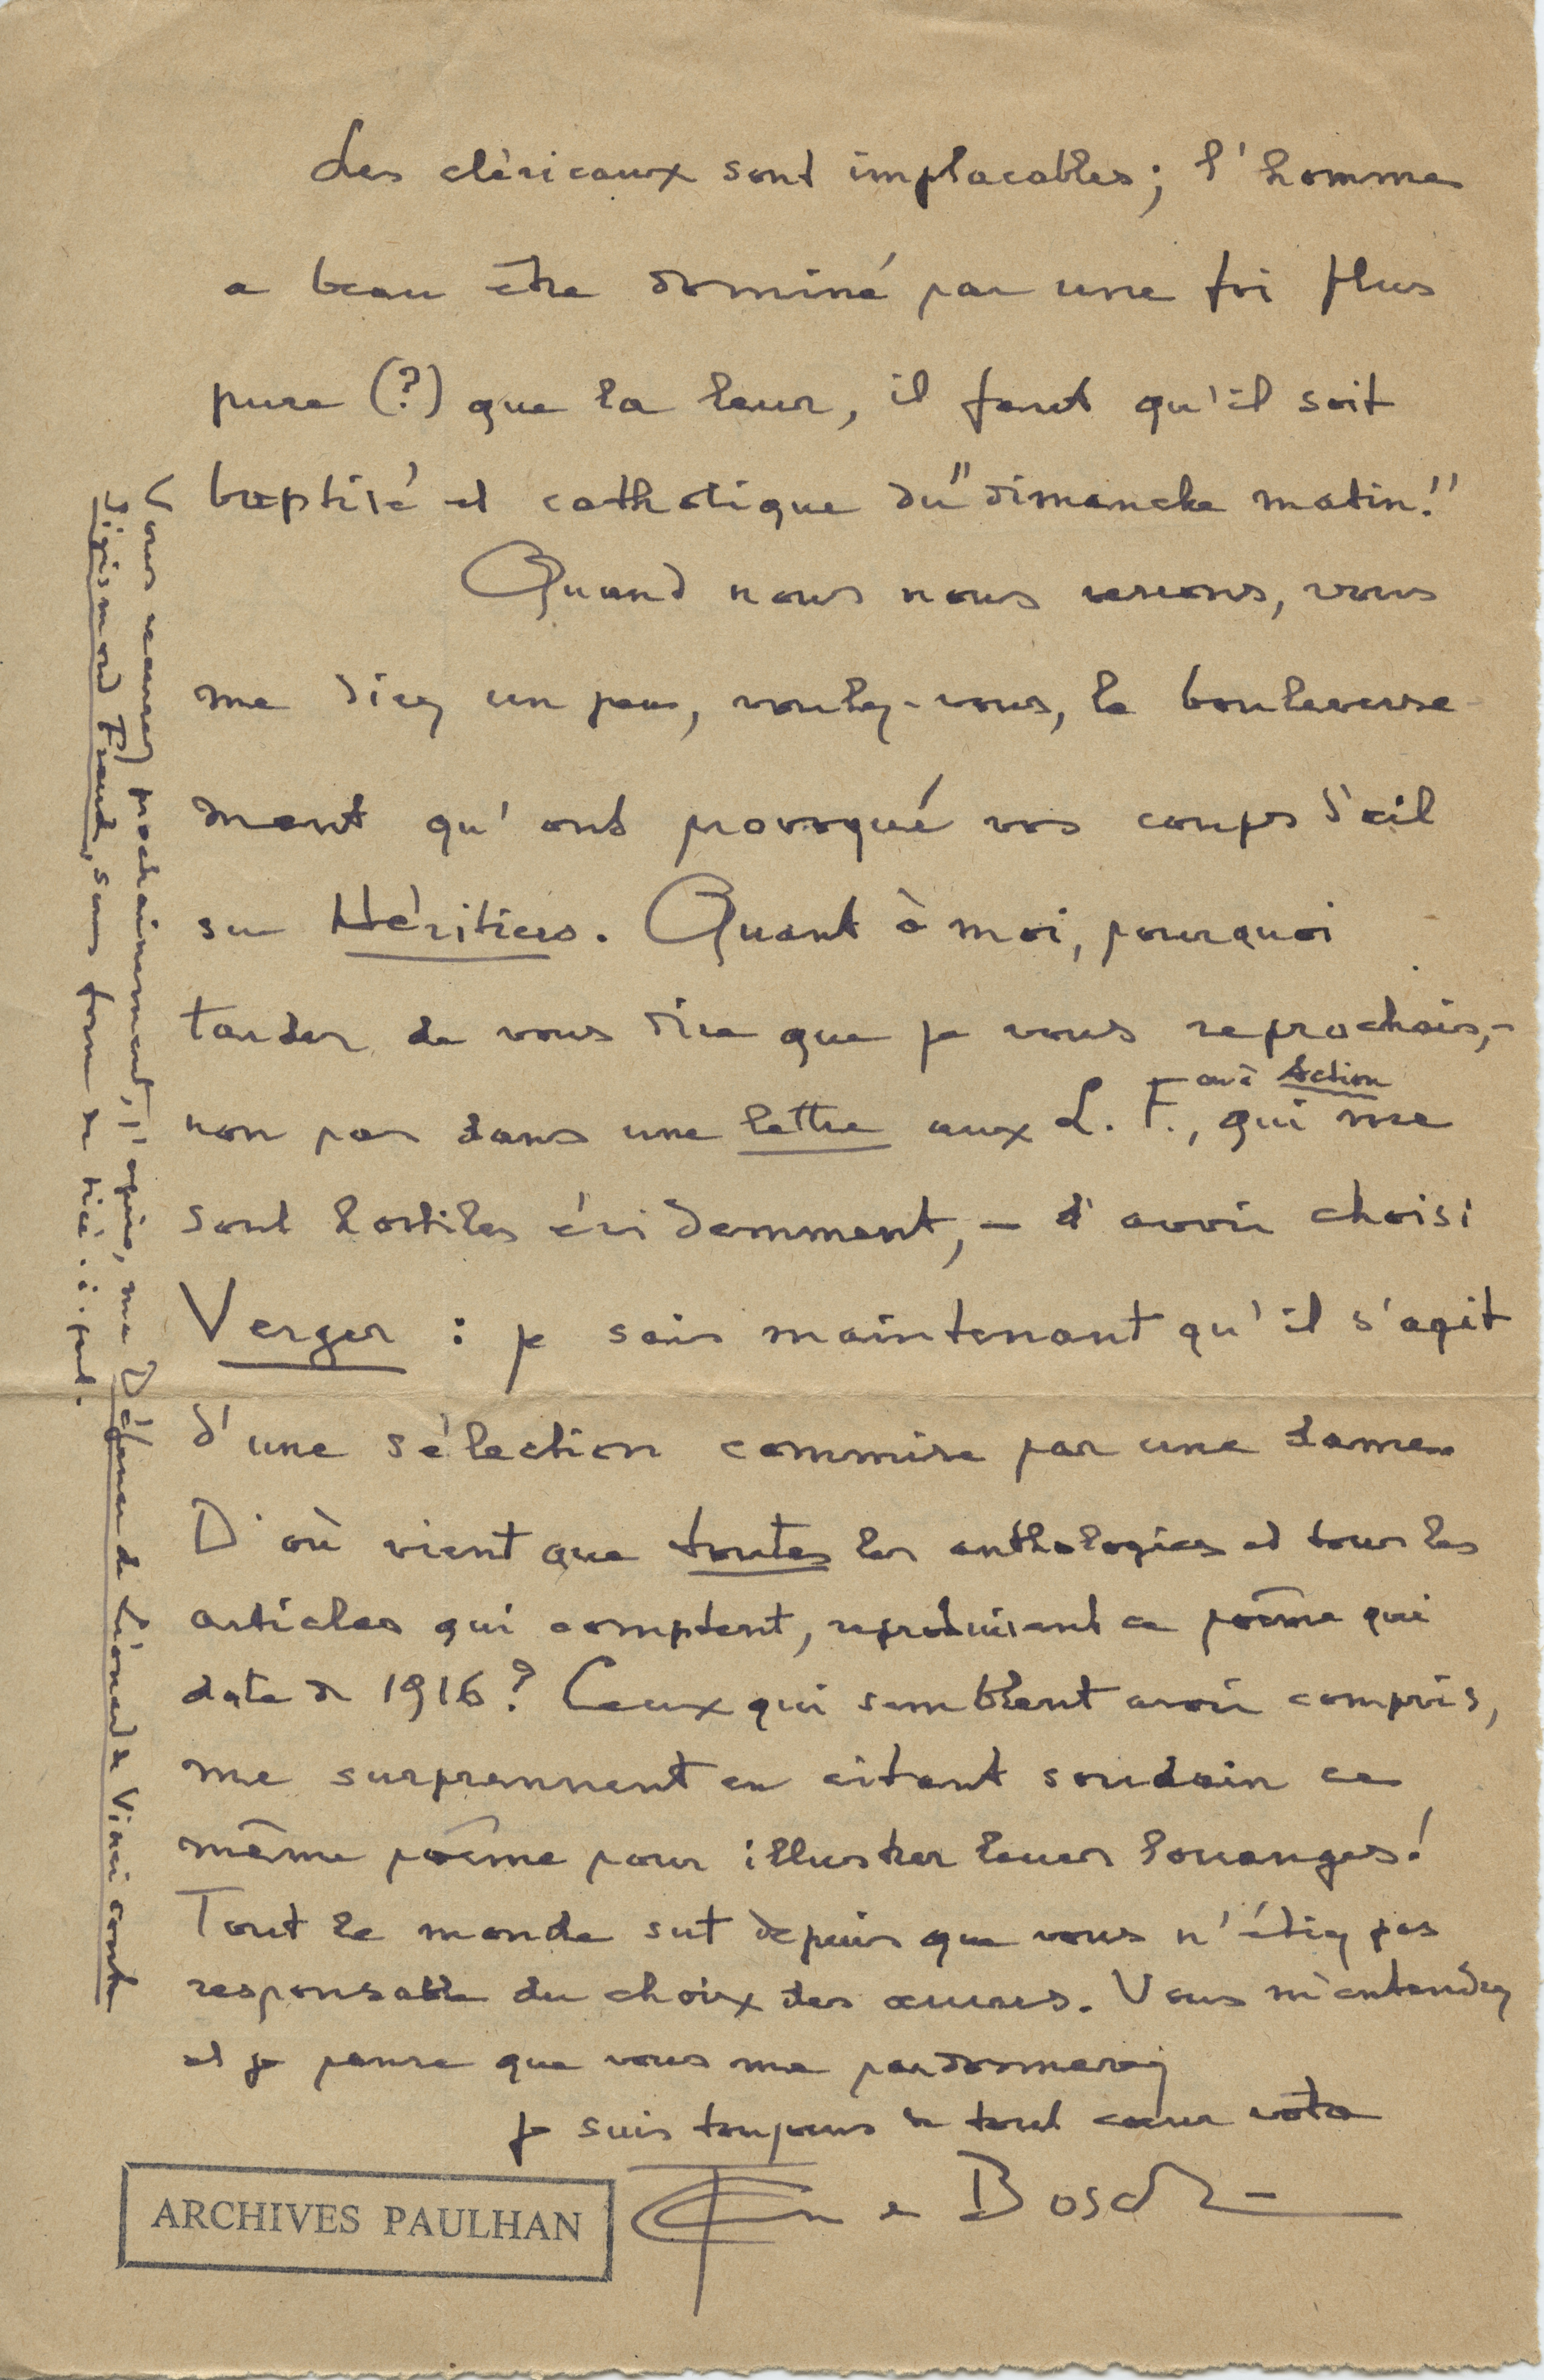 Les cléricaux sont implacables ; l'homme
a beau être dominé par une foi plus
pure (?) que la leur, il faut qu'il soit
baptisé et catholique du "dimanche matin!"
Quand nous nous verrons, vous
me direz un peu, voulez-vous, le bouleverse-
ment qu'ont provoqué vos coups d'œil
sur Héritiers. Quant à moi, pourquoi
tarder de vous dire que je vous reprochais,-
ou à Action
non pas dans une lettre aux L. F., qui me
sont hostiles évidemment, — d'avoir choisi
Verger : je sais maintenant qu'il s'agit
d'une sélection commise par une dame.
D'où vient que toutes les anthologies et tous les
articles qui comptent, reproduisent ce poème qui
date de 1916 ? Ceux qui semblent avoir compris,
me surprennent en citant soudain ce
même poème pour illustrer leurs louanges!
Tout le monde sut depuis que vous n'étiez pas
responsable du choix des œuvres. Vous m'entendez
et je pense que vous me pardonnerez
Je suis toujours de tout cœur votre
Bosch
ARCHIVES PAULHAN
Vous recevrez prochainement, j'espère, ma Défense de Léonard de Vinci contre
Sigismond Freud, sous forme de tiré-à-part.